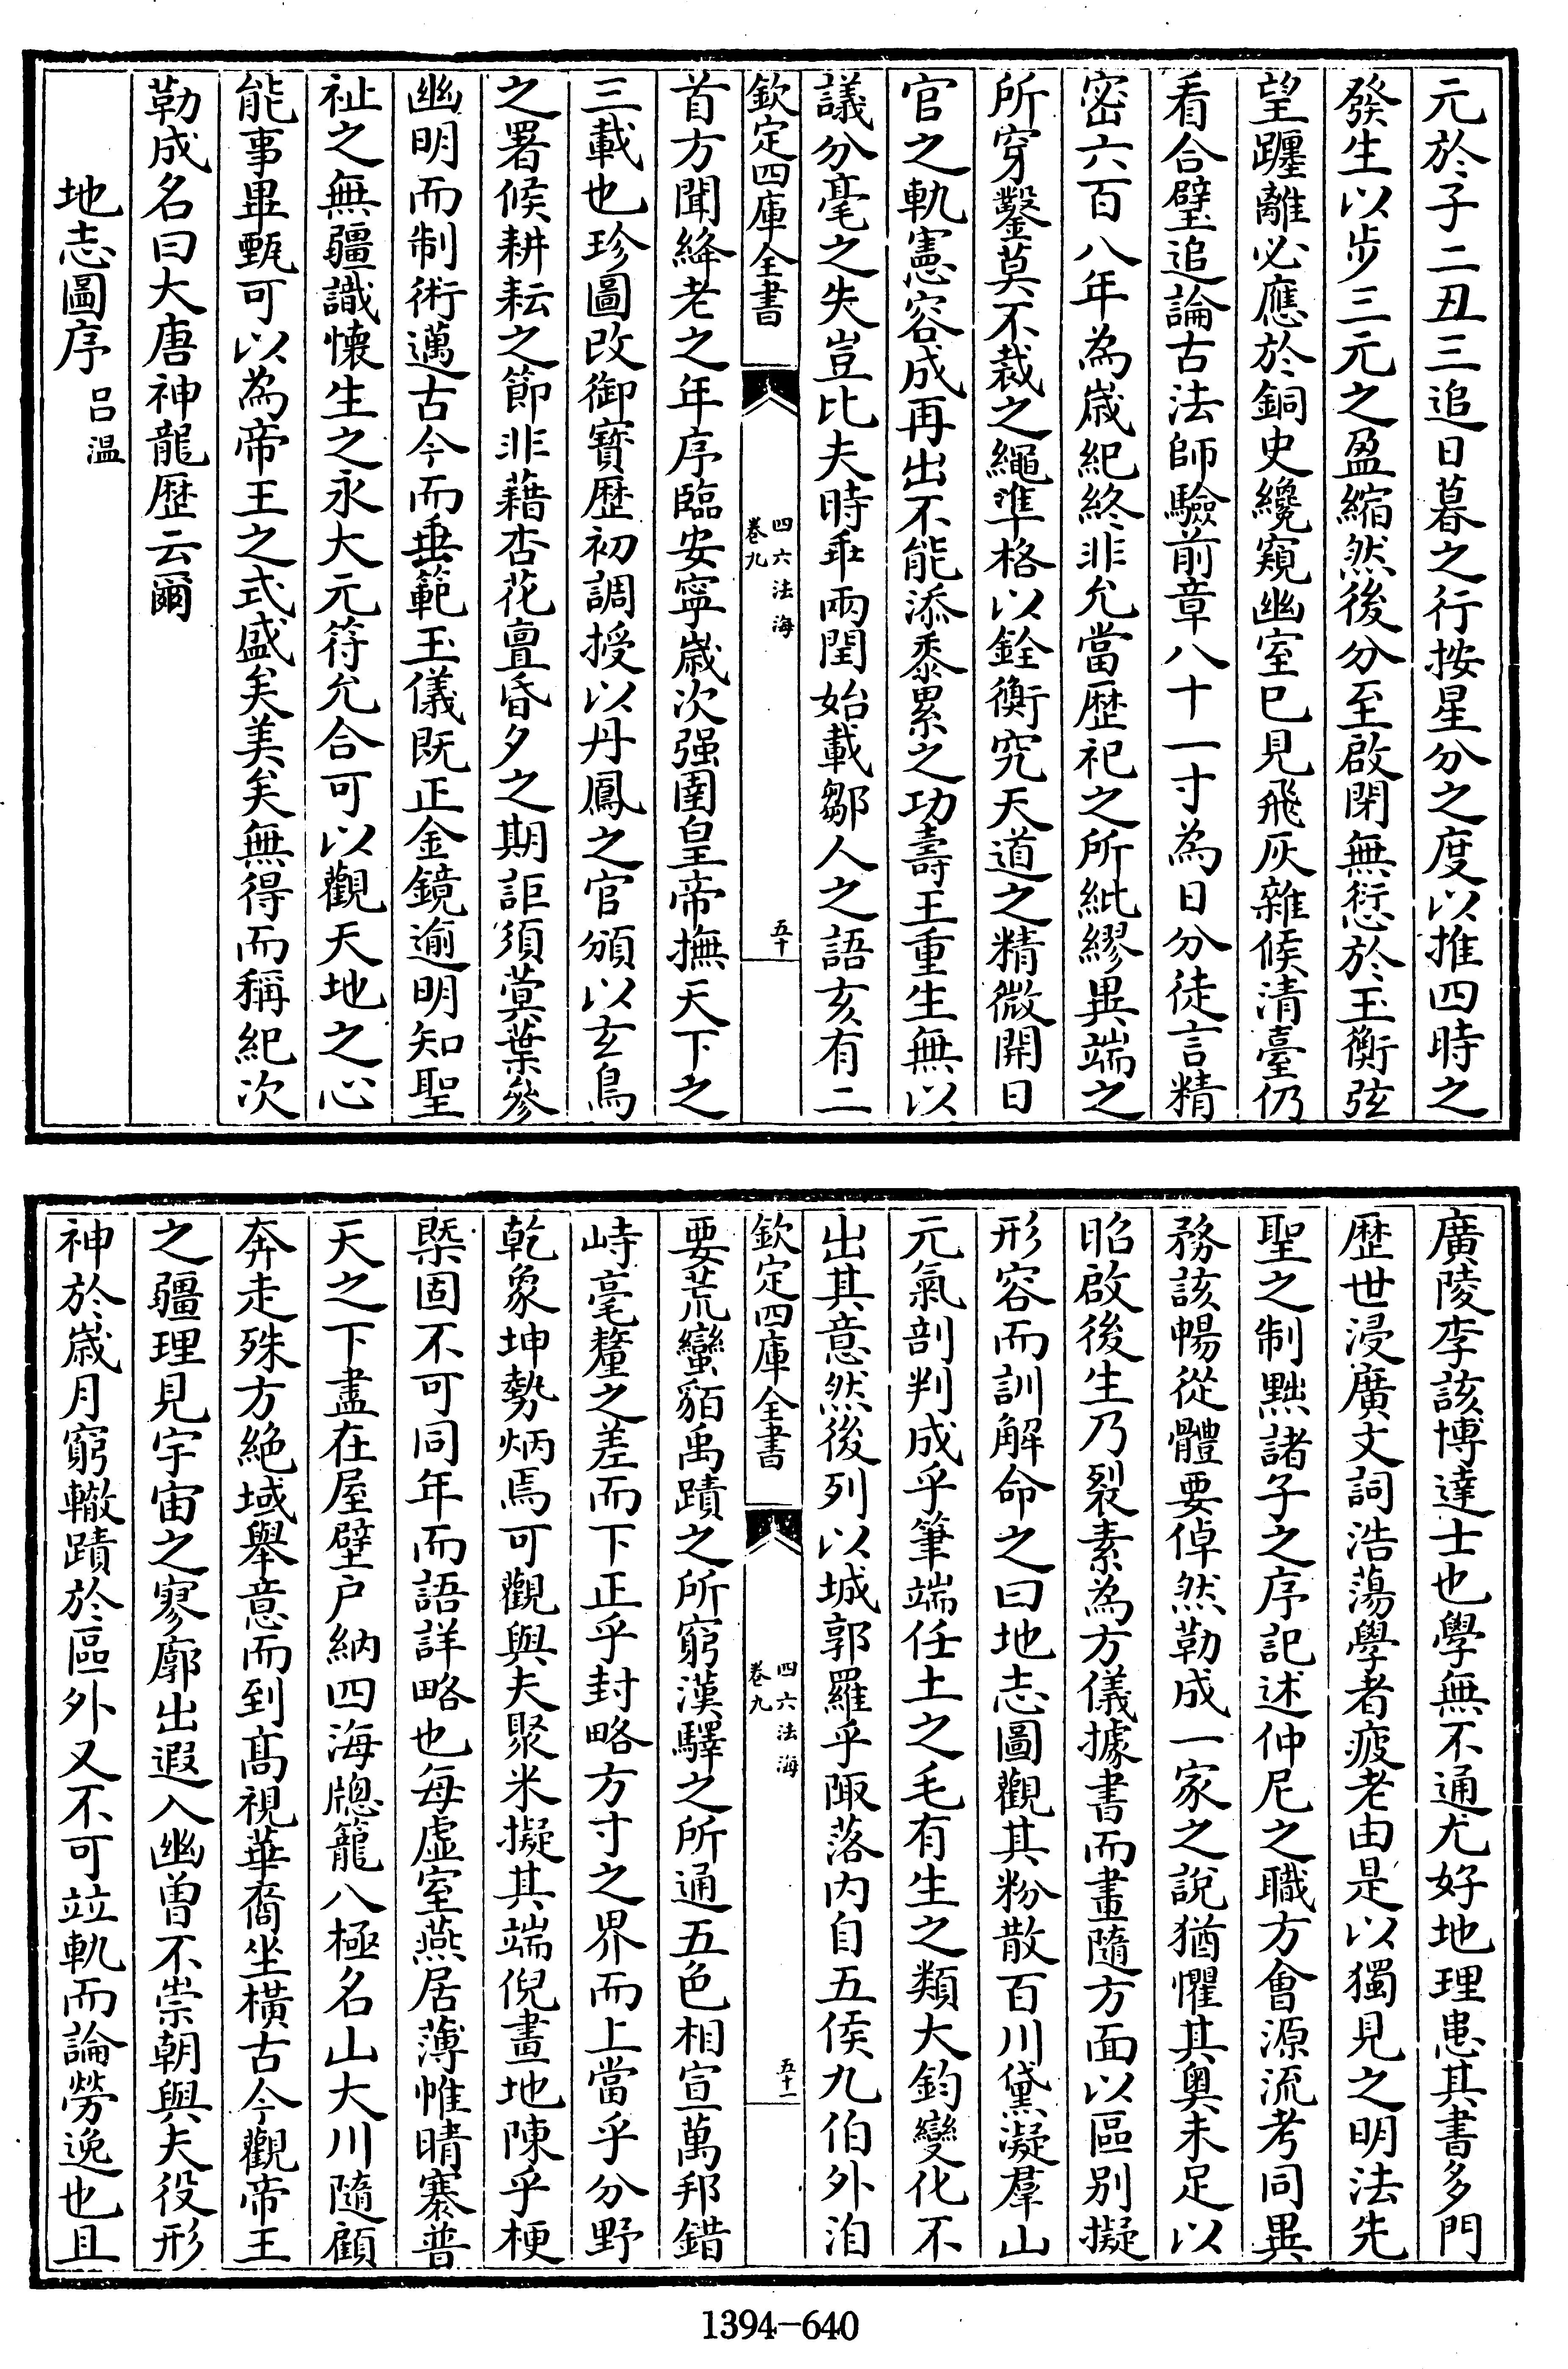 元於子二丑三追日暮之行按星分之度以推四時之
發生以步三元之盈縮然後分至啟閉無愆於玉衡弦
望躔離必應於銅史纔窺幽室已見飛灰雜候清臺仍
看合璧追論古法師驗前章八十一寸為日分徒言精
密六百八年為嵗紀終非允當歴祀之所紕繆異端之
所穿鑿莫不裁之繩準格以銓衡究天道之精微開日
官之軌憲容成再出不能添黍累之功壽王重生無以
議分毫之失豈比夫時乖兩閏始載鄒人之語亥有二
欽定四庫全書
四六法海
卷九
五十
首方聞絳老之年序臨安寧嵗次强圉皇帝撫天下之
三載也珍圖改御寳歴初調授以丹鳳之官頒以玄鳥
之署候耕耘之節非藉杏花亶昏夕之期詎須蓂葉參
幽明而制術邁古今而垂範玉儀既正金鏡逾明知聖
祉之無疆識懐生之永大元符允合可以觀天地之心
能事畢甄可以為帝王之式盛矣美矣無得而稱紀次
勒成名曰大唐神龍歴云爾
地志圖序 吕温
廣陵李該博達士也學無不通尤好地理患其書多門
歴世浸廣文詞浩蕩學者疲老由是以獨見之明法先
聖之制黜諸子之序記述仲尼之職方會源流考同異
務該暢從體要倬然勒成一家之說猶懼其奥未足以
昭啟後生乃裂素為方儀據書而畫隨方面以區别擬
形容而訓解命之曰地志圖觀其粉散百川黛凝羣山
元氣剖判成乎筆端任土之毛有生之類大鈞變化不
出其意然後列以城郭羅乎陬落内自五侯九伯外洎
欽定四庫全書
四六法海
卷九
五十一
要荒蠻貊禹蹟之所窮漢驛之所通五色相宣萬邦錯
峙毫釐之差而下正乎封略方寸之界而上當乎分野
乾象坤勢炳焉可觀與夫聚米擬其端倪畫地陳乎梗
槩固不可同年而語詳略也每虚室燕居薄帷晴褰普
天之下盡在屋壁户納四海牕籠八極名山大川隨顧
奔走殊方絶域舉意而到髙視華裔坐横古今觀帝王
之疆理見宇宙之寥廓出遐入幽曽不崇朝與夫役形
神於嵗月窮轍蹟於區外又不可竝軌而論勞逸也且
1394-640